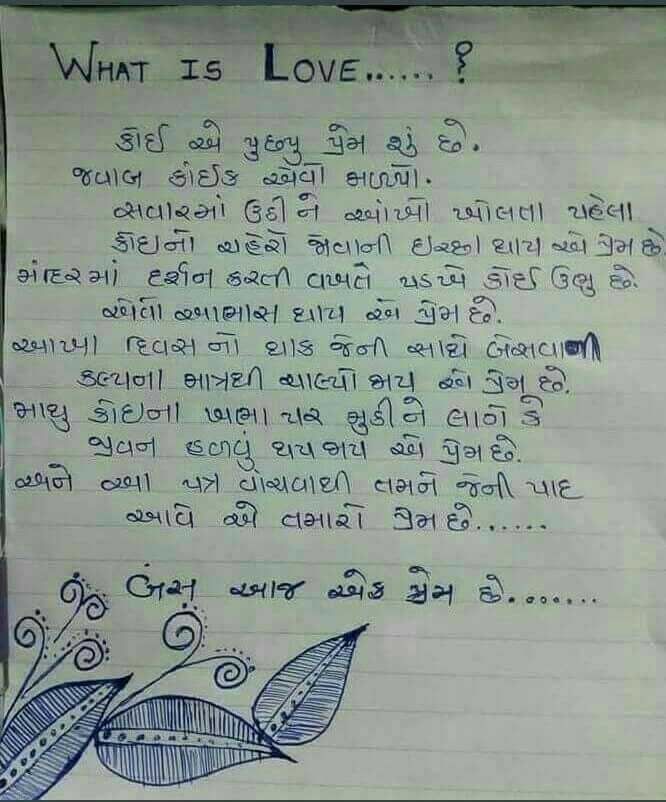 WHAT IS LOVE...... ?
કોઈ એ પુછ્યુ પ્રેમ શું છે.
જવાબ કાંઈક એવો મળ્યો.
સવારમાં ઉઠી ને આંખો ખોલતા પહેલા
કોઇનો ચહેરો જોવાની ઇચ્છા થાય એ પ્રેમ છે
મંદિરમાં દર્શન કરતી વખતે પડખે કોઈ ઉભુ છે.
એવો આભાસ થાય એ પ્રેમ છે.
આખા દિવસ નો થાક જેની સાથે બેસવાની
કલ્પના માત્રથી ચાલ્યો જાય એ પ્રેમ છે.
માથુ કોઇના ખભા પર મુકી ને લાગે કે
જીવન હળવું થય જાય એ પ્રેમ છે.
અને આ પત્ર વાંચવાથી તમને જેની યાદ
આવે એ તમારો પ્રેમ છે......
બસ આજ એક પ્રેમ છે........